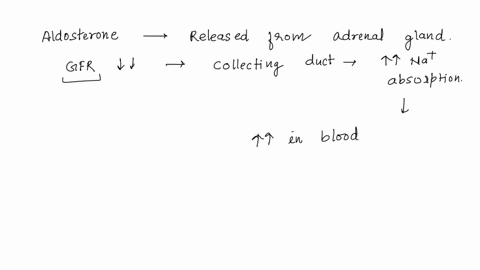 Aldosterone → Released from adrenal gland.
GFR ↓↓ → Collecting duct → ↑↑ Na+
absorption.
↓
↑↑ in blood